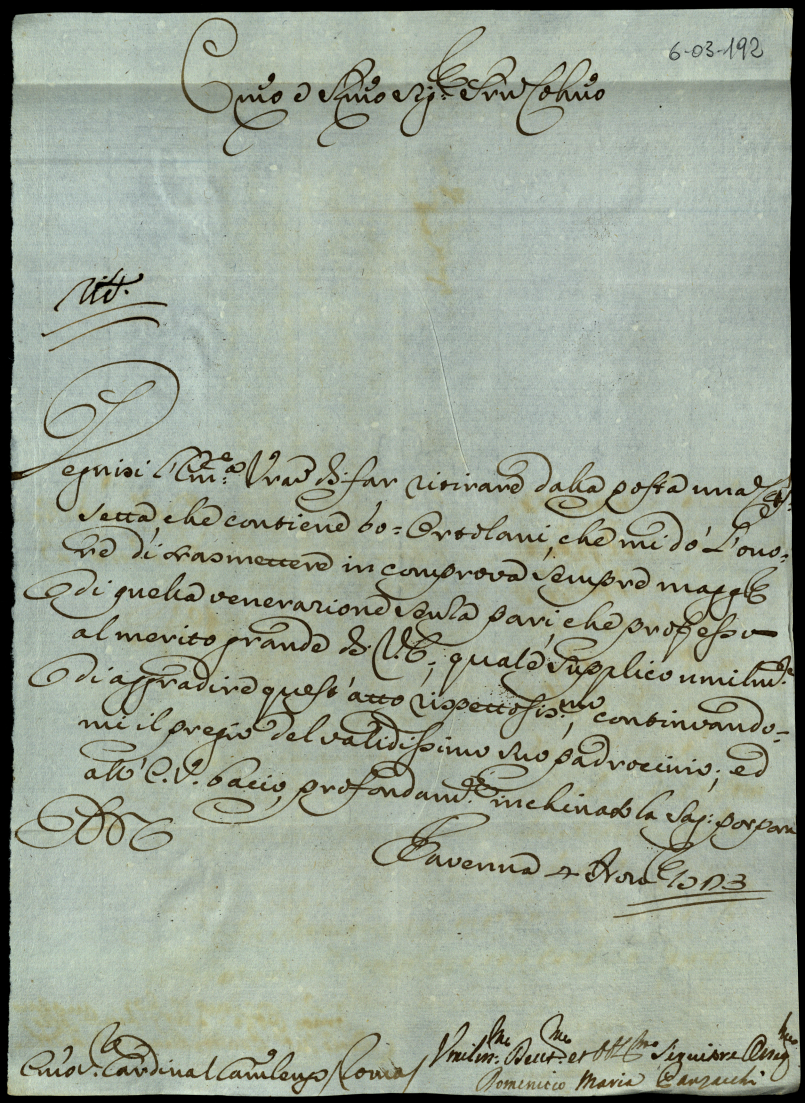 6-03-192
Emo e Rmo Sig.re Prne Colmo
Ritt.
Degnisi l'Em.a Vra di far ritirare dalla posta una Cas=
setta che contiene 60= Ortolani, che mi dò l'ono=
re di trasmettere in comprova sempre magg.re
di quella venerazione senza pari, che professo
al merito grande di V.E.; quale supplico umilm.te
di aggradire quest'atto rispettosis.mo continuando=
mi il pregio del validissimo suo padrocinio; ed
all'E.V. bacio profondam.te inchinato la Sag: porpora
Ravenna 4 Nov.re 1703
Emo S.r Cardinal Camerlengo Roma
Umiliss.mo Devt.mo et Obb.mo Servitore Osseq.mo
Domenico Maria